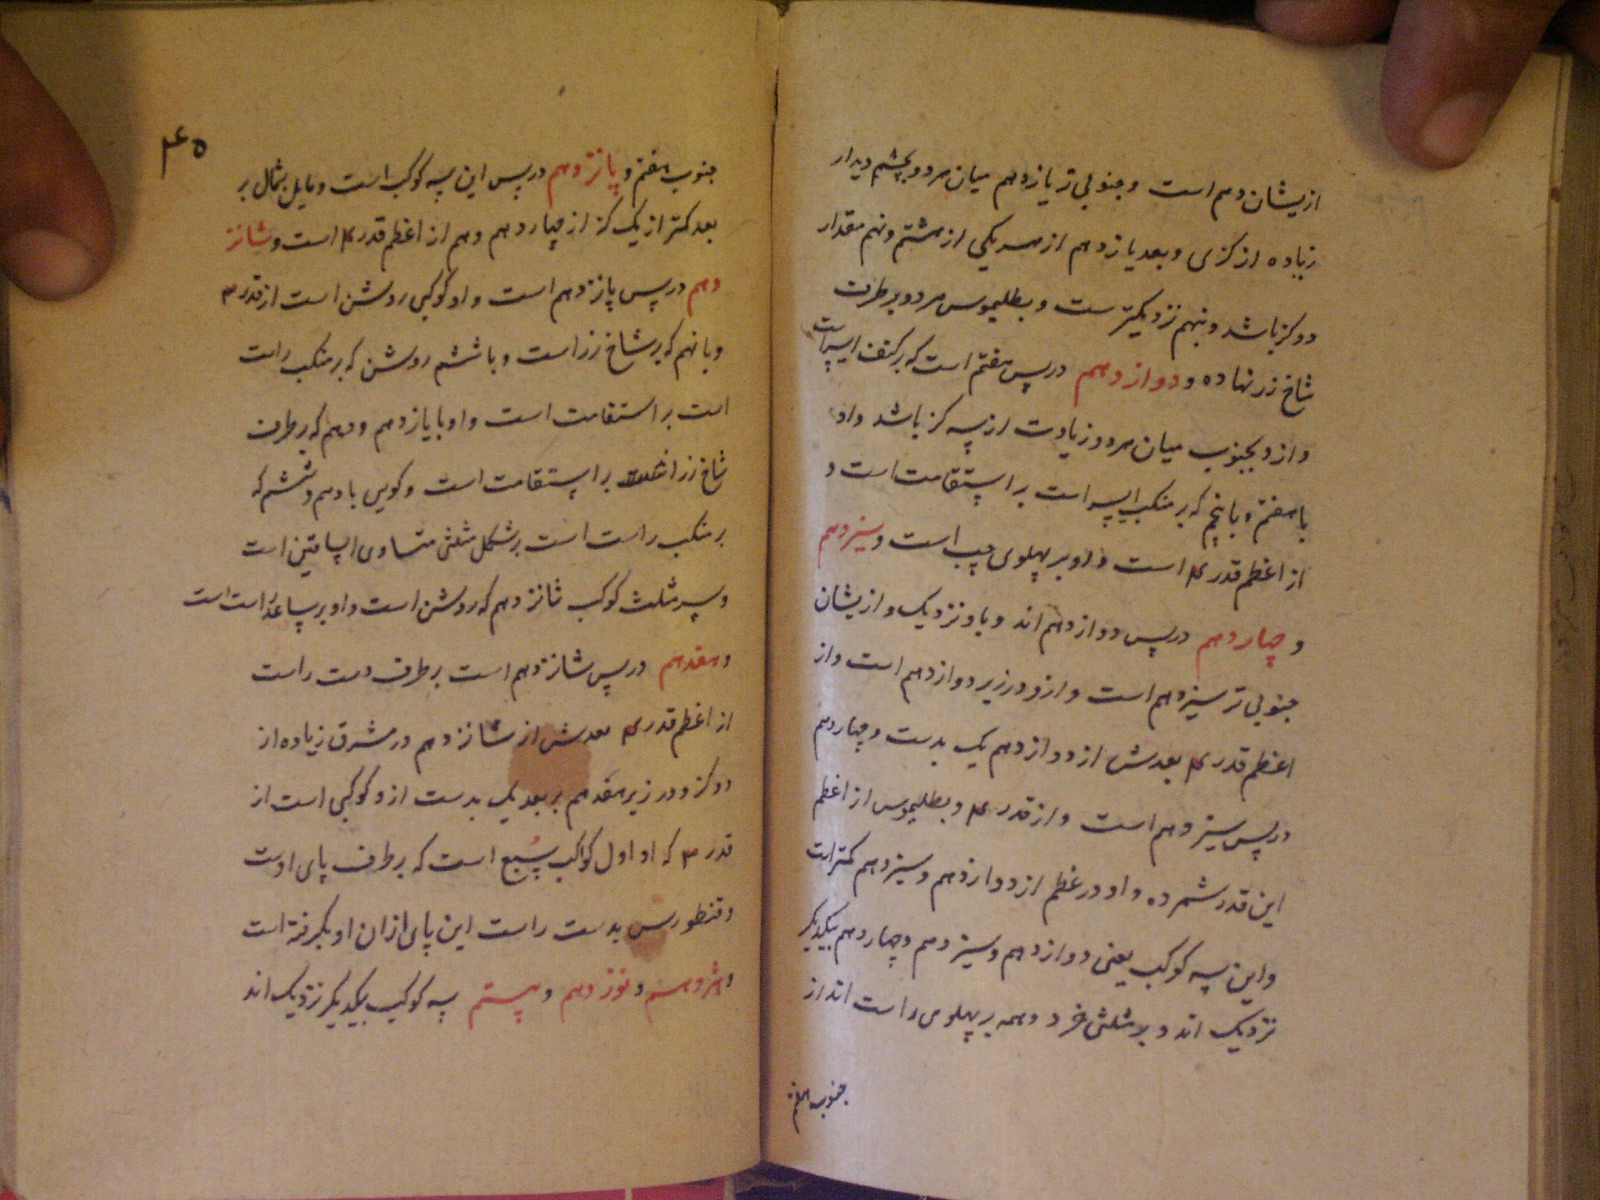 ازیشان دهم است و جنوبی تر یازدهم میان هر دو بچشم دیدار
زیاده از گزی و بعد یازدهم از هر یکی از هشتم و نهم مقدار
دو گز باشد و بنهم نزدیکترست و بطلیموس هر دو بر طرف
شاخ رز نهاده و دوازدهم در پس هفتم است که بر کتف ایسر است
و ازو بجنوب میان هر دو زیادت از سه گز باشد و او
با هفتم و با پنجم که بر منکب ایسر است بر استقامت است و
از اعظم قدر ۴ است و او بر پهلوی چپ است و سیزدهم
و چهاردهم در پس دوازدهم اند و باو نزدیک و ازیشان
جنوبی تر سیزدهم است و ازو در زیر دوازدهم است و از
اعظم قدر ۴ بعدش از دوازدهم یک بدست و چهاردهم
در پس سیزدهم است و از قدر ۴ و بطلیموس از اعظم
این قدر شمرده و او در عظم از دوازدهم و سیزدهم کمتر است
و این سه کوکب یعنی دوازدهم و سیزدهم و چهاردهم بیکدیگر
نزدیک اند و بر مثلثی خرد و همه بر پهلوی راست اند از
جنوب هفتم
۴۵
جنوب هفتم و پانزدهم در پس این سه کوکب است و مایل بشمال بر
بعد کمتر از یک گز از چهاردهم و هم از اعظم قدر ۴ است و شانز
دهم در پس پانزدهم است و او کوکبی روشن است از قدر ۳
و با نهم که بر شاخ رز است و با ششم روشن که بر منکب راست
است بر استقامت است و او با یازدهم و دهم که بر طرف
شاخ رز بر استقامت است و کویس با دهم و ششم که
بر منکب راست است بر شکل مثلثی متساوی الساقین است
و سر مثلث کوکب شانزدهم که روشن است و او بر ساعد راست است
و هفدهم در پس شانزدهم است بر طرف دست راست
از اعظم قدر ۴ بعدش از شانزدهم در مشرق زیاده از
دو گز و در زیر هفدهم بر بعد یک بدست ازو کوکبی است از
قدر ۳ که او اول کواکب سبع است که بر طرف پای اوست
و قنطورس بدست راست این پای ازان او بگرفته است
و هژدهم و نوزدهم و بیستم سه کوکب بیکدیگر نزدیک اند